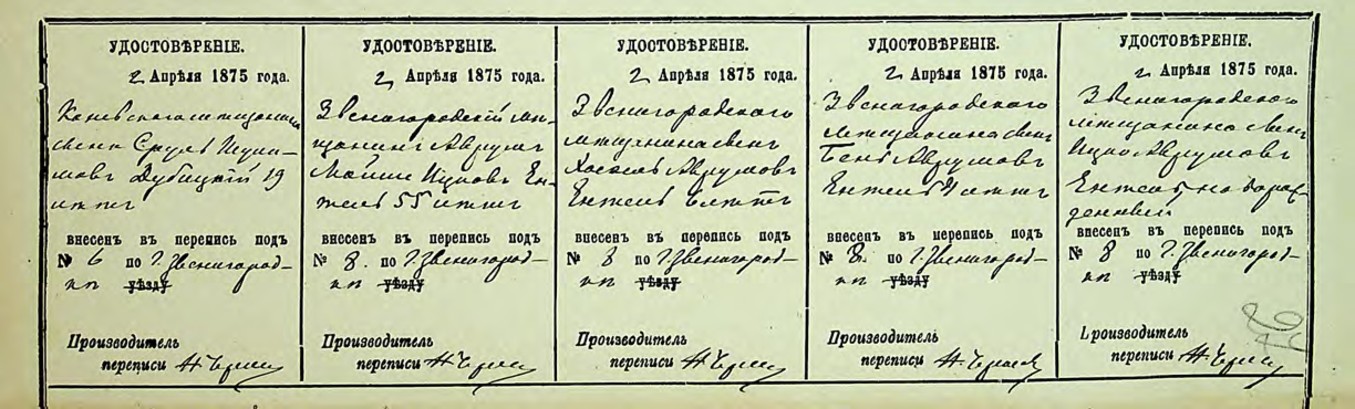 УДОСТОВѢРЕНІЕ.
2 Апрѣля 1875 года.
Каневского мещанина
сынъ Сруль Ицко-
мовъ Дубицкій 19
лѣтъ
внесенъ въ перепись подъ
№ 6 по г. Звенигород-
кѣ уѣзду
Производитель
переписи
УДОСТОВѢРЕНІЕ.
2 Апрѣля 1875 года.
Звенигородскій мѣ-
щанинъ Аврумъ
Мошко Ицковъ Ен-
тель 55 лѣтъ
внесенъ въ перепись подъ
№ 8. по г. Звенигород-
кѣ уѣзду
Производитель
переписи
УДОСТОВѢРЕНІЕ.
2 Апрѣля 1875 года.
Звенигородского
мѣщанина сынъ
Хаскель Аврумовъ
Ентель 6 лѣтъ
внесенъ въ перепись подъ
№ 8 по г. Звенигород-
кѣ уѣзду
Производитель
переписи
УДОСТОВѢРЕНІЕ.
2 Апрѣля 1875 года.
Звенигородского
мѣщанина сынъ
Бенъ Аврумовъ
Ентель 4 лѣтъ
внесенъ въ перепись подъ
№ 8. по г. Звенигород-
кѣ уѣзду
Производитель
переписи
УДОСТОВѢРЕНІЕ.
2 Апрѣля 1875 года.
Звенигородского
мѣщанина сынъ
Ицко Аврумовъ
Ентель
внесенъ въ перепись подъ
№ 8 по г. Звенигород-
кѣ уѣзду
Производитель
переписи